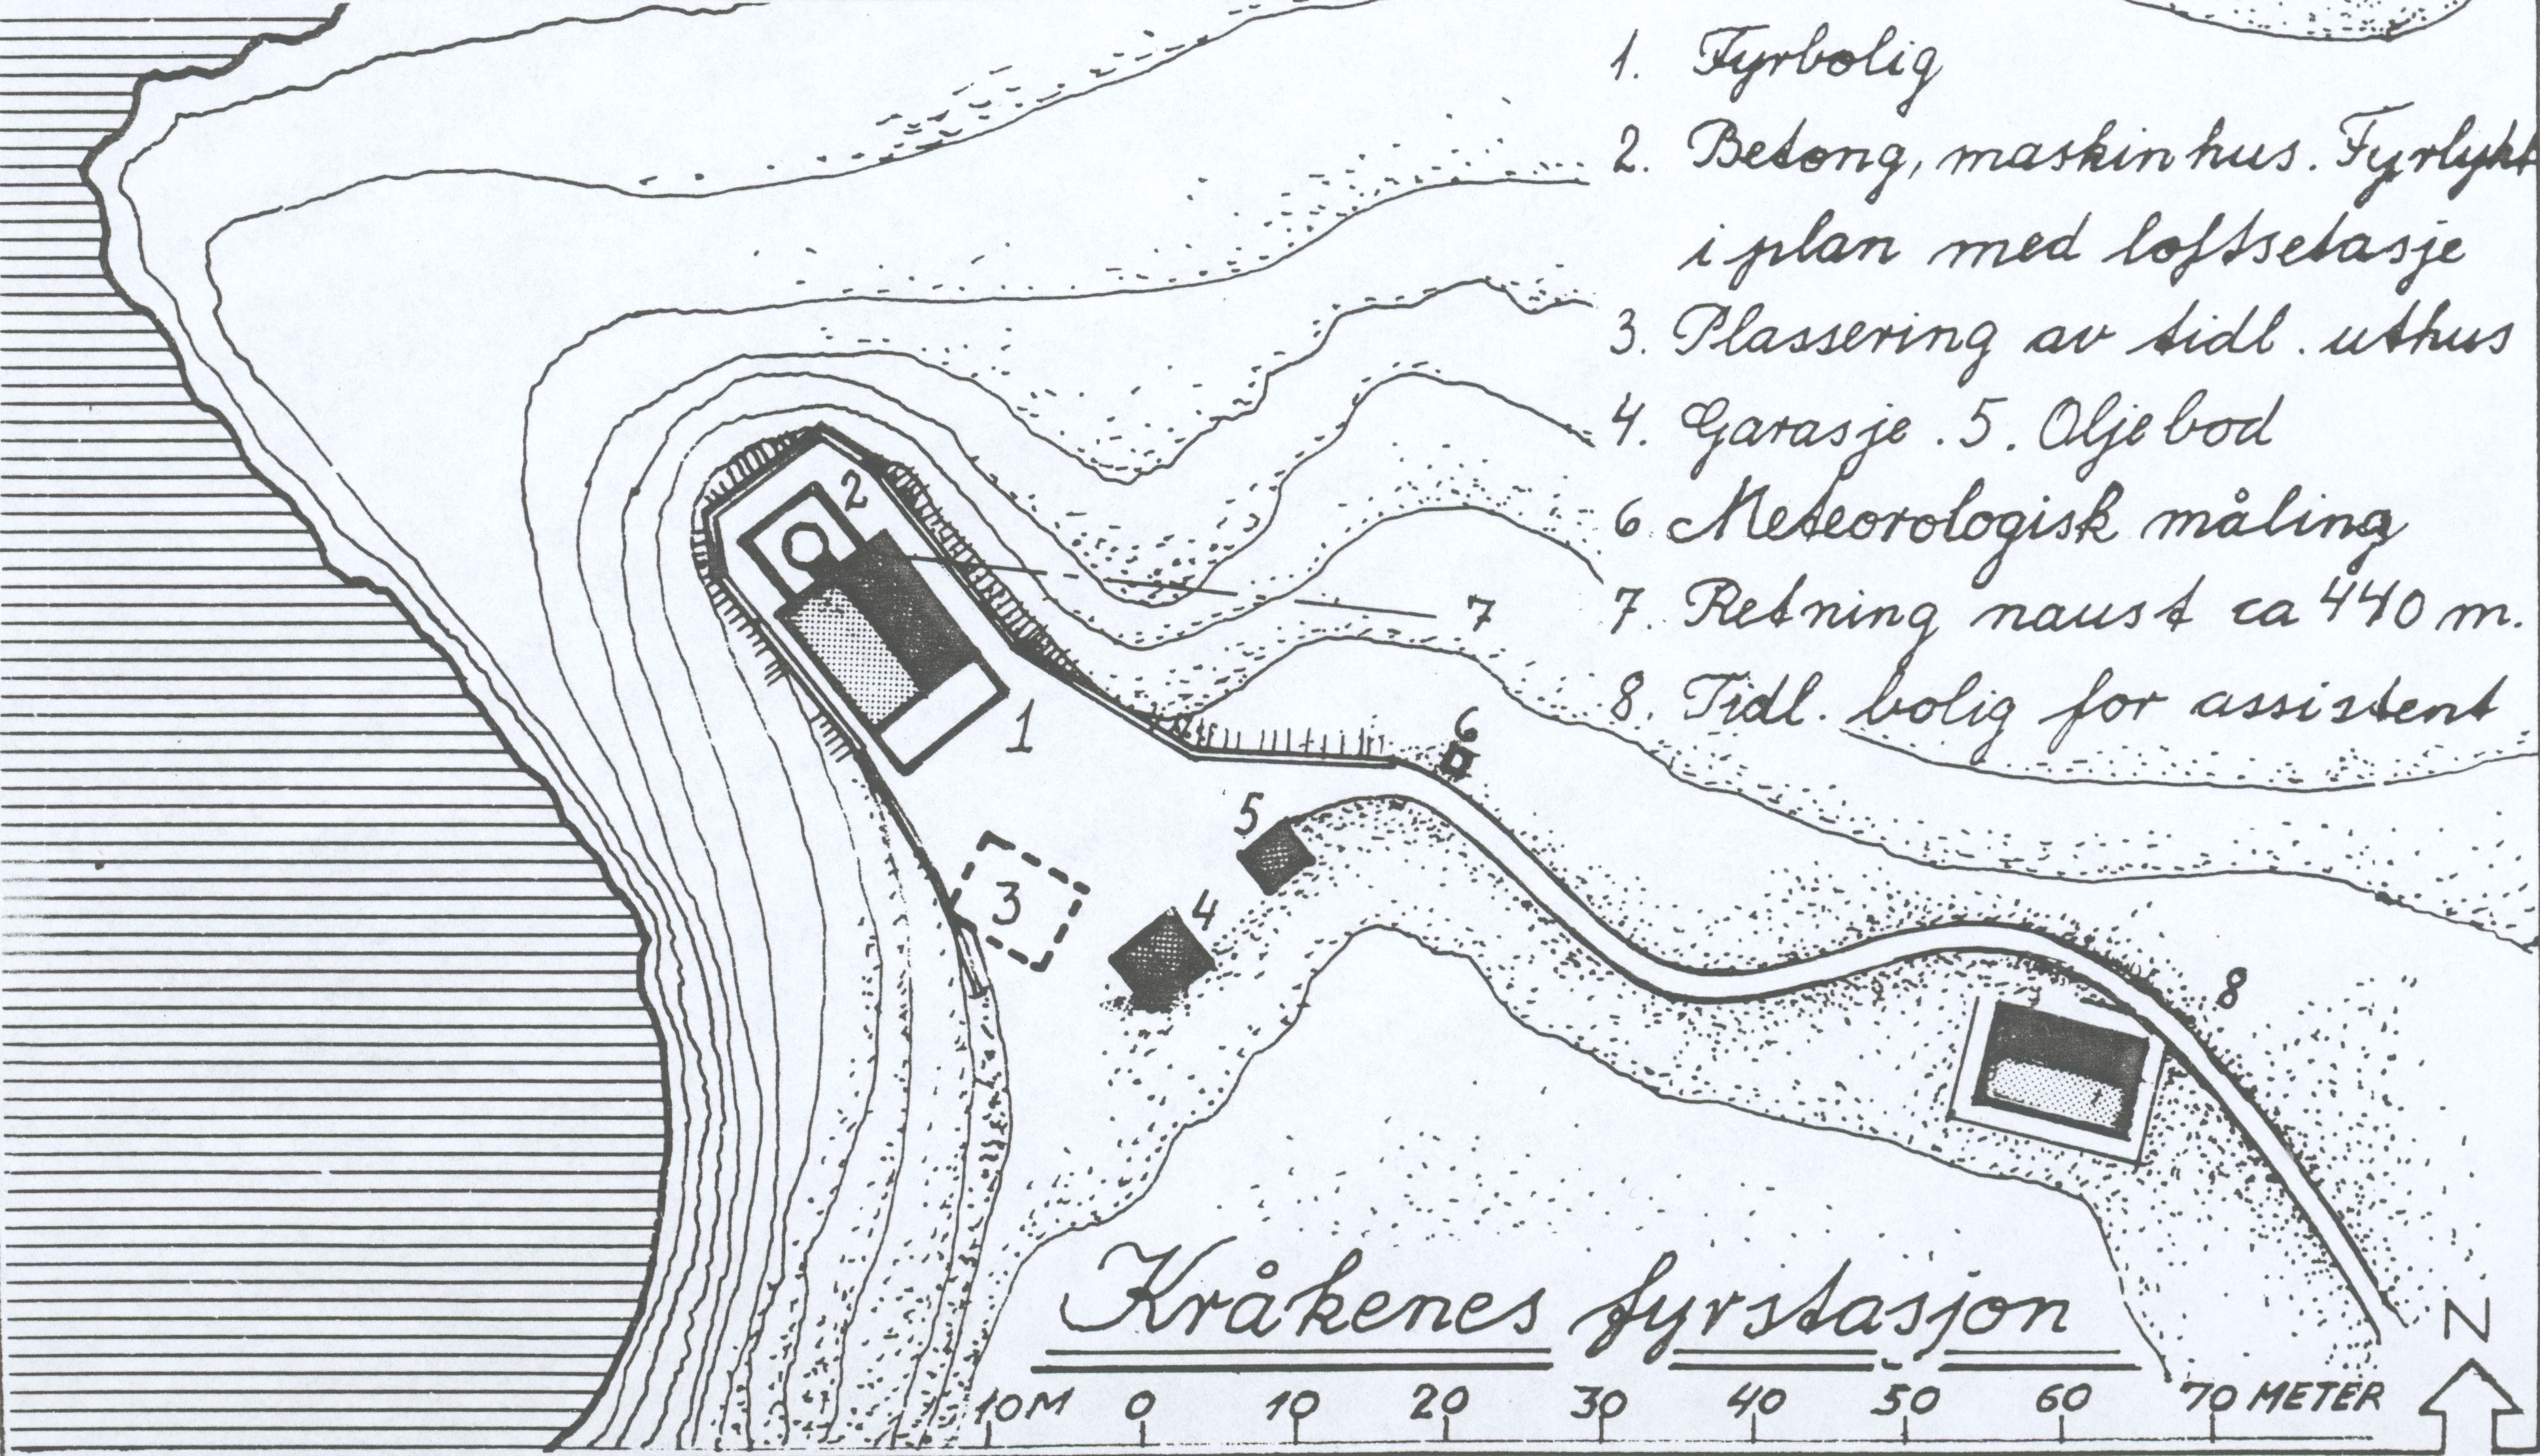 1. Fyrbolig
2. Betong, maskinhus. Fyrlykt
i plan med loftsetasje
3. Plassering av tidl. uthus
4. Garasje. 5. Oljebod
6. Meteorologisk måling
7. Retning naust ca 440 m.
8. Tidl. bolig for assistent
2
7
1
6
5
3
4
8
Kråkenes fyrstasjon
N
10M 0 10 20 30 40 50 60 70 METER